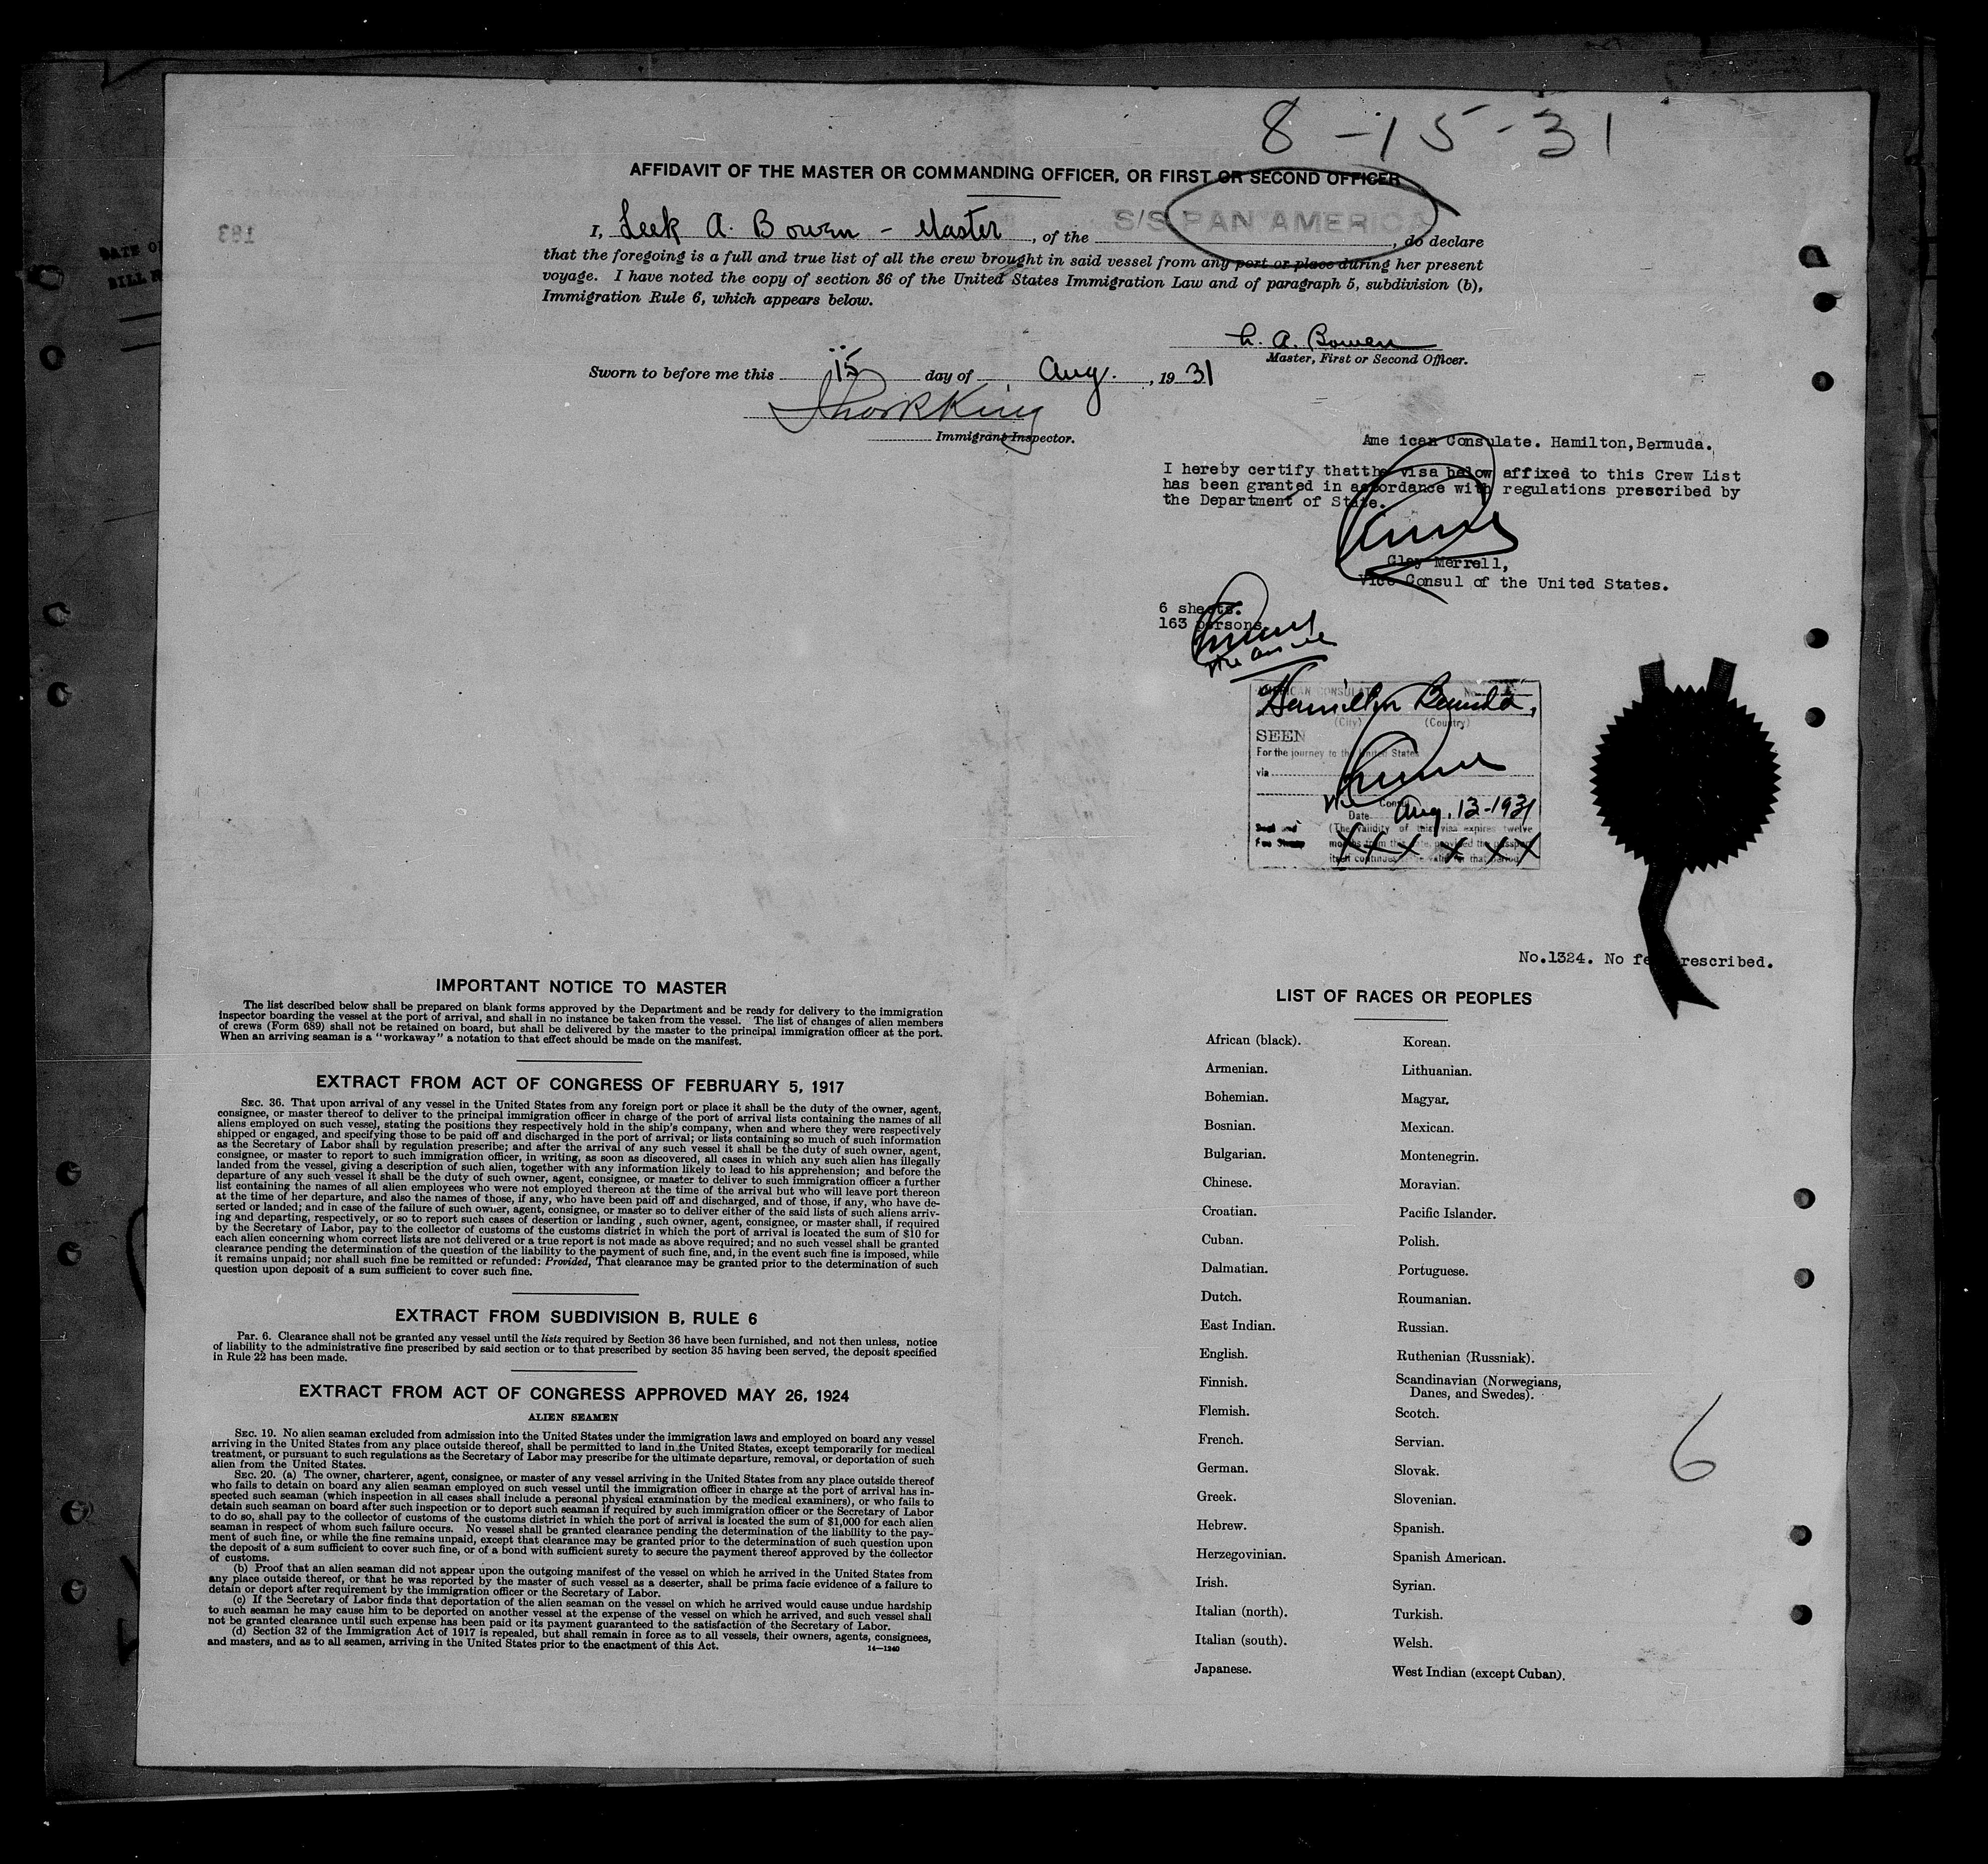 8-15-31
AFFIDAVIT OF THE MASTER OR COMMANDING OFFICER, OR FIRST OR SECOND OFFICER
I, Leek A. Bowen - Master, of the S/S PAN AMERICA, do declare
that the foregoing is a full and true list of all the crew brought in said vessel from any port or place during her present
voyage. I have noted the copy of section 36 of the United States Immigration Law and of paragraph 5, subdivision (b),
Immigration Rule 6, which appears below.
L. A. Bowen
Master, First or Second Officer.
Sworn to before me this 15 day of Aug., 1931
Immigrant Inspector.
163
DATE OF
BILL
Ame ican Consulate. Hamilton,Bermuda.
I hereby certify thatthe visa below affixed to this Crew List
has been granted in accordance with regulations prescribed by
the Department of State.
Clay Merrell,
Vice Consul of the United States.
6 sheets.
163 persons
AMERICAN CONSULATE No.
Hamilton Bermuda,
(City) (Country)
SEEN
For the journey to the United States
via
Consul
Date Aug. 13-1931
Seal and (The validity of this visa expires twelve
Fee Stamp months from this date, provided the passport
itself continues to be valid for that period)
XXX X XX
No.1324. No fee prescribed.
IMPORTANT NOTICE TO MASTER
The list described below shall be prepared on blank forms approved by the Department and be ready for delivery to the immigration
inspector boarding the vessel at the port of arrival, and shall in no instance be taken from the vessel. The list of changes of alien members
of crews (Form 689) shall not be retained on board, but shall be delivered by the master to the principal immigration officer at the port.
When an arriving seaman is a "workaway" a notation to that effect should be made on the manifest.
EXTRACT FROM ACT OF CONGRESS OF FEBRUARY 5, 1917
SEC. 36. That upon arrival of any vessel in the United States from any foreign port or place it shall be the duty of the owner, agent,
consignee, or master thereof to deliver to the principal immigration officer in charge of the port of arrival lists containing the names of all
aliens employed on such vessel, stating the positions they respectively hold in the ship's company, when and where they were respectively
shipped or engaged, and specifying those to be paid off and discharged in the port of arrival; or lists containing so much of such information
as the Secretary of Labor shall by regulation prescribe; and after the arrival of any such vessel it shall be the duty of such owner, agent,
consignee, or master to report to such immigration officer, in writing, as soon as discovered, all cases in which any such alien has illegally
landed from the vessel, giving a description of such alien, together with any information likely to lead to his apprehension; and before the
departure of any such vessel it shall be the duty of such owner, agent, consignee, or master to deliver to such immigration officer a further
list containing the names of all alien employees who were not employed thereon at the time of the arrival but who will leave port thereon
at the time of her departure, and also the names of those, if any, who have been paid off and discharged, and of those, if any, who have de-
serted or landed; and in case of the failure of such owner, agent, consignee, or master so to deliver either of the said lists of such aliens arriv-
ing and departing, respectively, or so to report such cases of desertion or landing, such owner, agent, consignee, or master shall, if required
by the Secretary of Labor, pay to the collector of customs of the customs district in which the port of arrival is located the sum of $10 for
each alien concerning whom correct lists are not delivered or a true report is not made as above required; and no such vessel shall be granted
clearance pending the determination of the question of the liability to the payment of such fine, and, in the event such fine is imposed, while
it remains unpaid; nor shall such fine be remitted or refunded: Provided, That clearance may be granted prior to the determination of such
question upon deposit of a sum sufficient to cover such fine.
EXTRACT FROM SUBDIVISION B, RULE 6
Par. 6. Clearance shall not be granted any vessel until the lists required by Section 36 have been furnished, and not then unless, notice
of liability to the administrative fine prescribed by said section or to that prescribed by section 35 having been served, the deposit specified
in Rule 22 has been made.
EXTRACT FROM ACT OF CONGRESS APPROVED MAY 26, 1924
ALIEN SEAMEN
SEC. 19. No alien seaman excluded from admission into the United States under the immigration laws and employed on board any vessel
arriving in the United States from any place outside thereof, shall be permitted to land in the United States, except temporarily for medical
treatment, or pursuant to such regulations as the Secretary of Labor may prescribe for the ultimate departure, removal, or deportation of such
alien from the United States.
SEC. 20. (a) The owner, charterer, agent, consignee, or master of any vessel arriving in the United States from any place outside thereof
who fails to detain on board any alien seaman employed on such vessel until the immigration officer in charge at the port of arrival has in-
spected such seaman (which inspection in all cases shall include a personal physical examination by the medical examiners), or who fails to
detain such seaman on board after such inspection or to deport such seaman if required by such immigration officer or the Secretary of Labor
to do so, shall pay to the collector of customs of the customs district in which the port of arrival is located the sum of $1,000 for each alien
seaman in respect of whom such failure occurs. No vessel shall be granted clearance pending the determination of the liability to the pay-
ment of such fine, or while the fine remains unpaid, except that clearance may be granted prior to the determination of such question upon
the deposit of a sum sufficient to cover such fine, or of a bond with sufficient surety to secure the payment thereof approved by the collector
of customs.
(b) Proof that an alien seaman did not appear upon the outgoing manifest of the vessel on which he arrived in the United States from
any place outside thereof, or that he was reported by the master of such vessel as a deserter, shall be prima facie evidence of a failure to
detain or deport after requirement by the immigration officer or the Secretary of Labor.
(c) If the Secretary of Labor finds that deportation of the alien seaman on the vessel on which he arrived would cause undue hardship
to such seaman he may cause him to be deported on another vessel at the expense of the vessel on which he arrived, and such vessel shall
not be granted clearance until such expense has been paid or its payment guaranteed to the satisfaction of the Secretary of Labor.
(d) Section 32 of the Immigration Act of 1917 is repealed, but shall remain in force as to all vessels, their owners, agents, consignees,
and masters, and as to all seamen, arriving in the United States prior to the enactment of this Act.
14—1240
LIST OF RACES OR PEOPLES
African (black). Korean.
Armenian. Lithuanian.
Bohemian. Magyar.
Bosnian. Mexican.
Bulgarian. Montenegrin.
Chinese. Moravian.
Croatian. Pacific Islander.
Cuban. Polish.
Dalmatian. Portuguese.
Dutch. Roumanian.
East Indian. Russian.
English. Ruthenian (Russniak).
Finnish. Scandinavian (Norwegians,
Danes, and Swedes).
Flemish. Scotch.
French. Servian.
German. Slovak.
Greek. Slovenian.
Hebrew. Spanish.
Herzegovinian. Spanish American.
Irish. Syrian.
Italian (north). Turkish.
Italian (south). Welsh.
Japanese. West Indian (except Cuban).
6